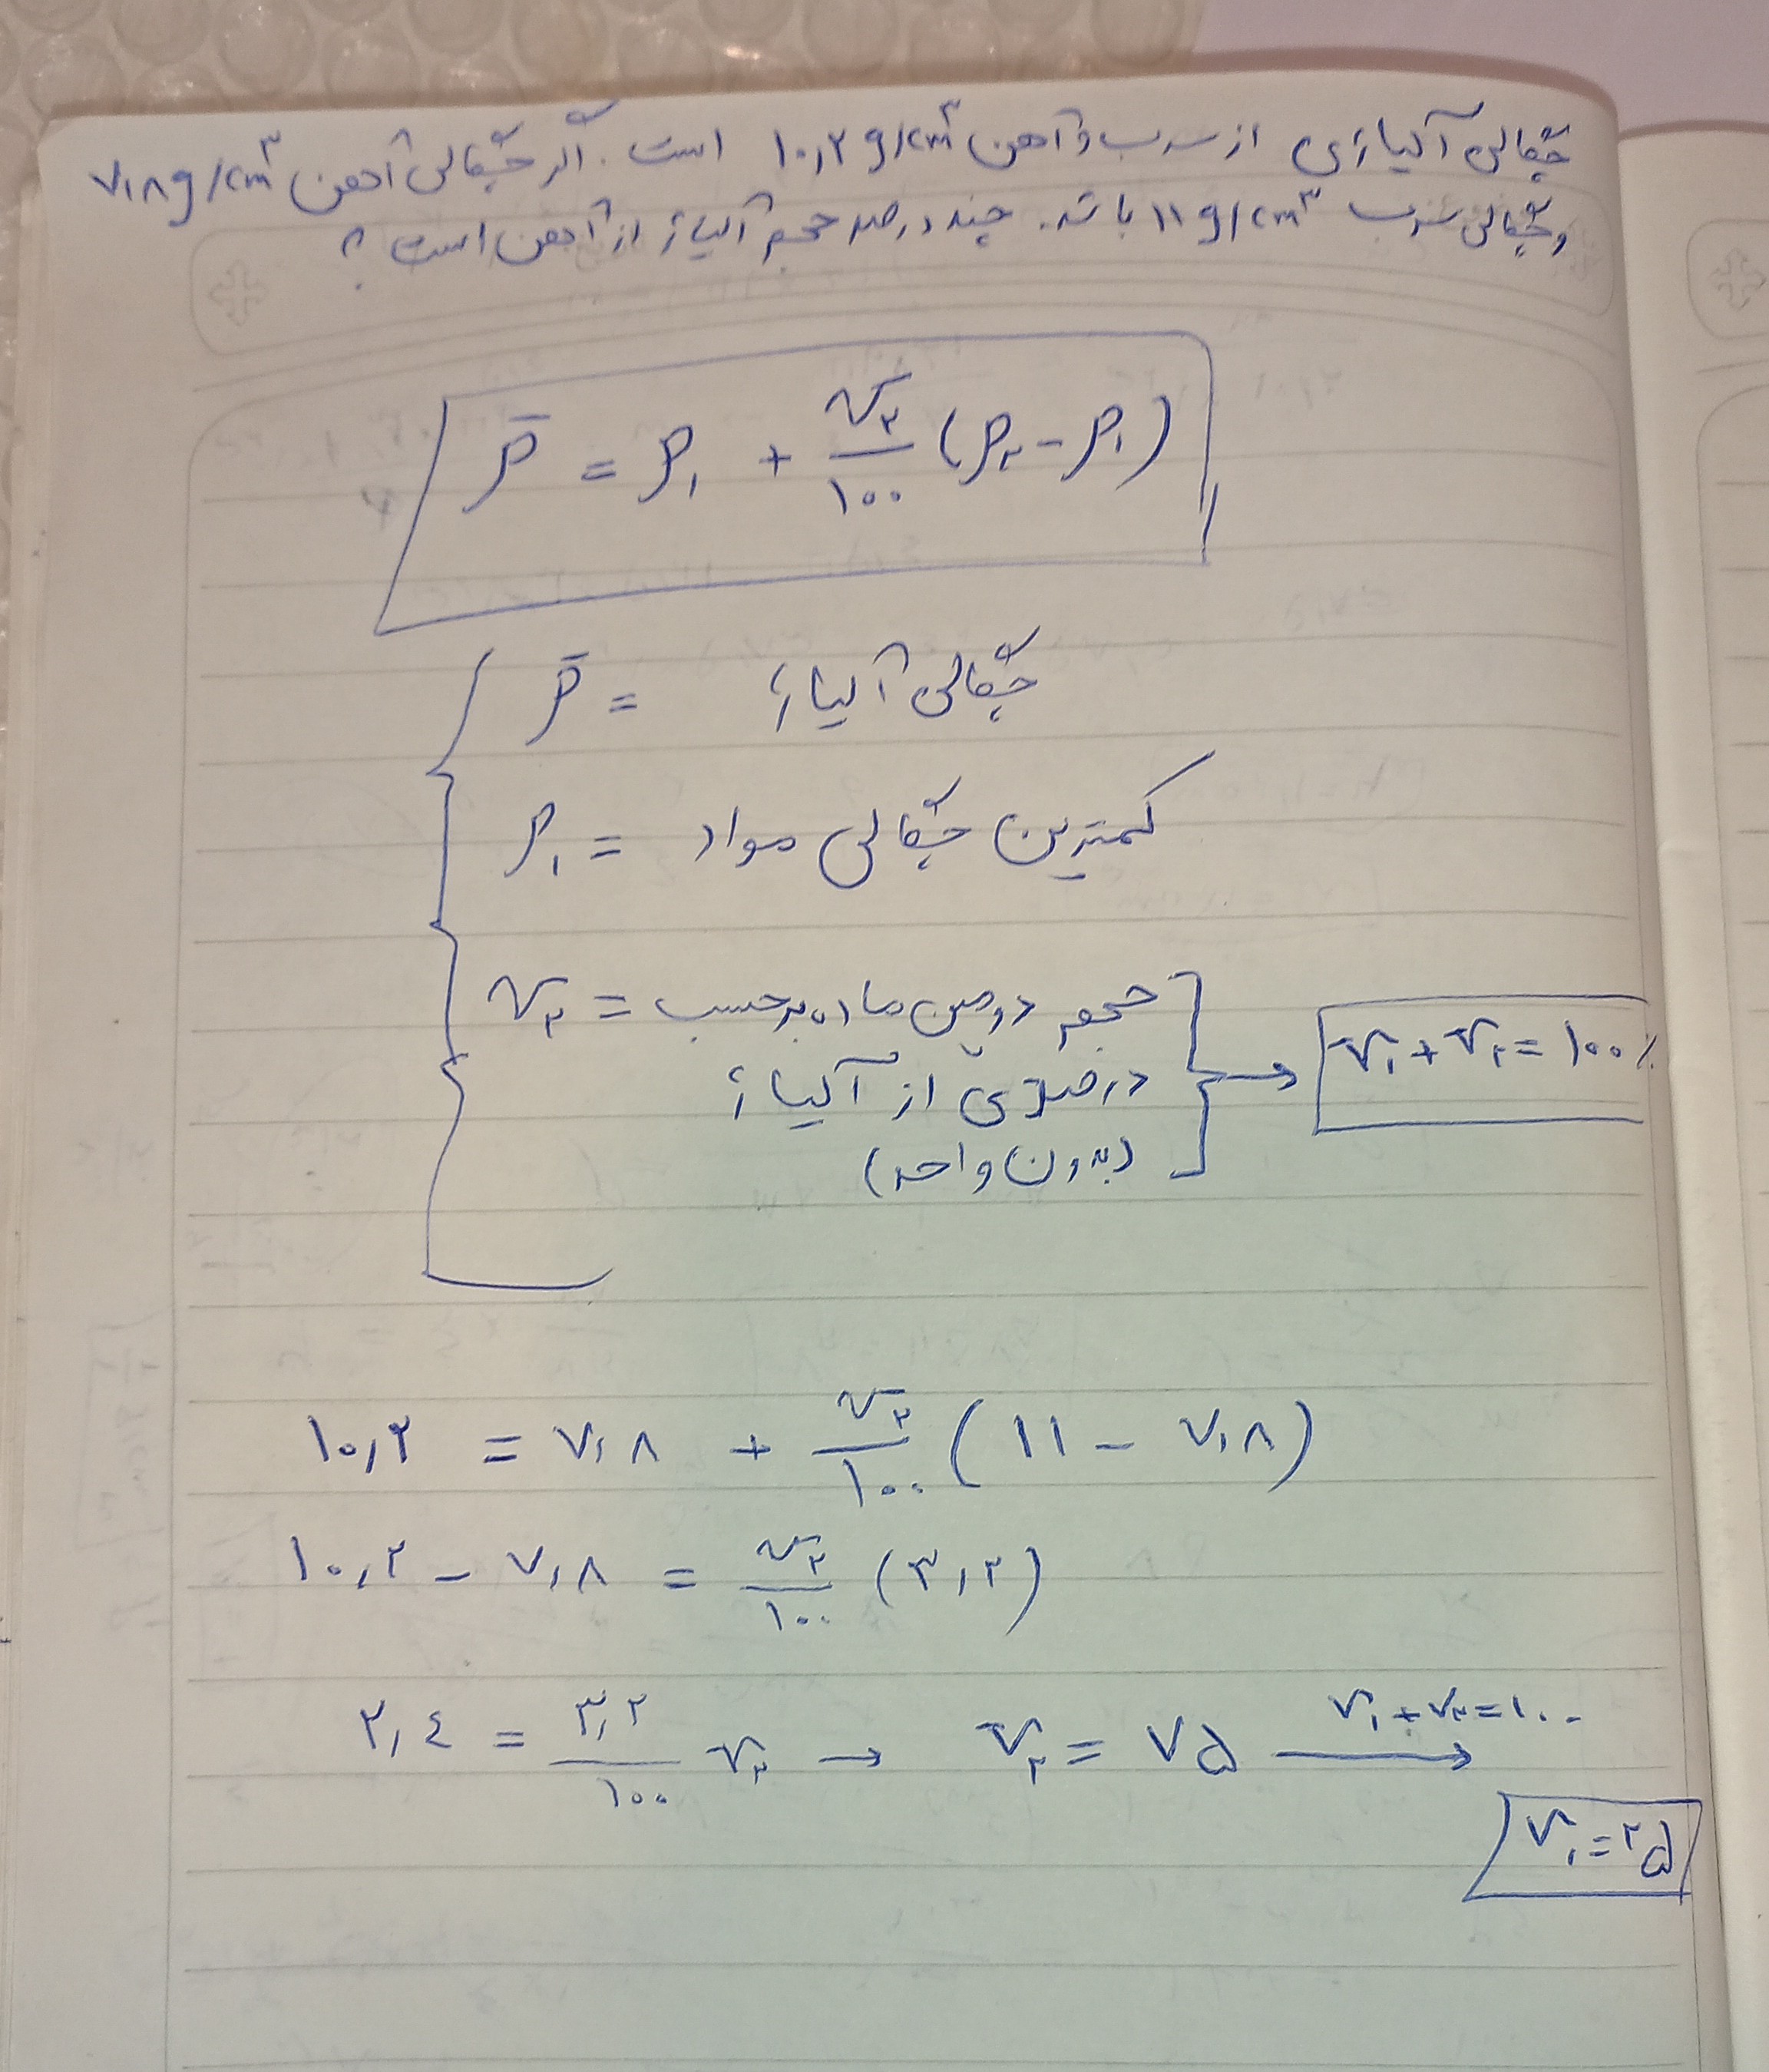 چگالی آلیاژی از سرب و آهن ۱۰٫۲ g/cm³ است. اگر چگالی آهن ۷٫۸ g/cm³
و چگالی سرب ۱۱ g/cm³ باشد. چند درصد حجم آلیاژ از آهن است؟
ρ̄ = ρ₁ + V₂/۱۰۰ (ρ₂ - ρ₁)
ρ̄ = چگالی آلیاژ
ρ₁ = کمترین چگالی مواد
V₂ = حجم دومین ماده برحسب
درصدی از آلیاژ
(بدون واحد)
→ V₁ + V₂ = ۱۰۰٪
۱۰٫۲ = ۷٫۸ + V₂/۱۰۰ (۱۱ - ۷٫۸)
۱۰٫۲ - ۷٫۸ = V₂/۱۰۰ (۳٫۲)
۲٫۴ = ۳٫۲/۱۰۰ V₂ → V₂ = ۷۵ V₁ + V₂ = ۱۰۰ →
V₁ = ۲۵